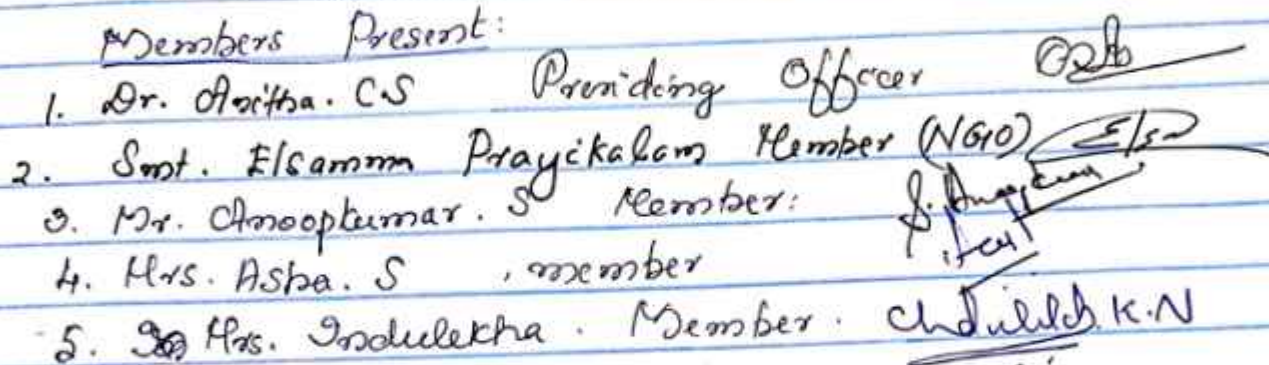 Members Present:
1. Dr. Anitha. C.S Presiding Officer
2. Smt. Elsamma Prayikalam Member (NGO)
3. Mr. Anoopkumar. S Member:
4. Mrs. Asha. S , member
5. Mrs. Indulekha . Member . K.N